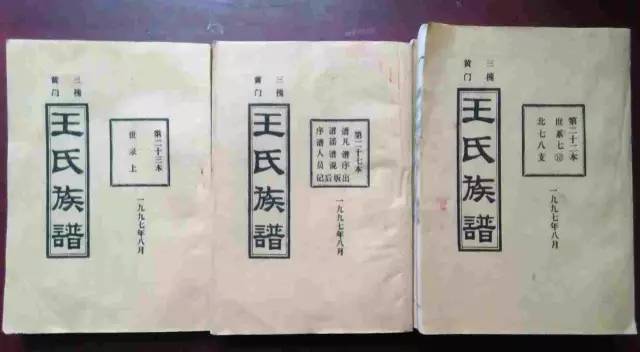 三槐
黄门
王氏族譜
第二十三本
世录上
一九九七年八月
三槐
黄门
王氏族譜
第二十七本
序谱人员
一九九七年八月
三槐
黄门
王氏族譜
第二十二本
世系七
北七八支
一九九七年八月